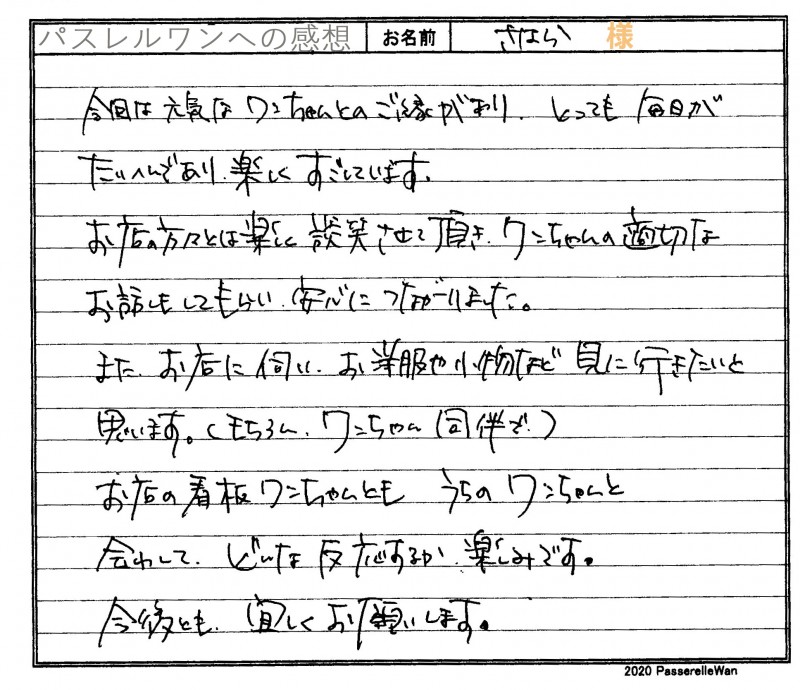 パスレルワンへの感想 お名前 さはら 様
今回は元気なワンちゃんとのご縁があり、とっても毎日が
たいへんであり、楽しくすごしています。
お店の方々とは楽しく談笑させて頂き、ワンちゃんの適切な
お話しもしてもらい、安心につながりました。
また、お店に伺い、お洋服や小物など見に行きたいと
思います。(もちろん、ワンちゃん同伴で)
お店の看板ワンちゃんとも うちのワンちゃんと
会わして、どんな反応するか、楽しみです。
今後とも、宜しくお願いします。
2020 PasserelleWan